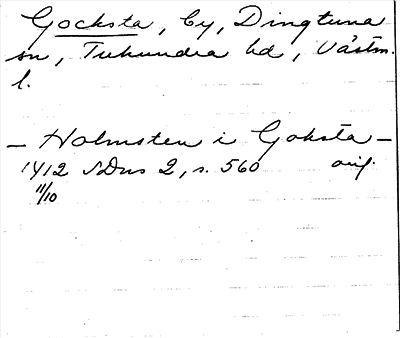 Gocksta, by, Dingtuna
sn, Tuhundra hd, Västm.
l.
— Holmsten i Goksta —
1412 SDns 2, s. 560 orig.
11/10